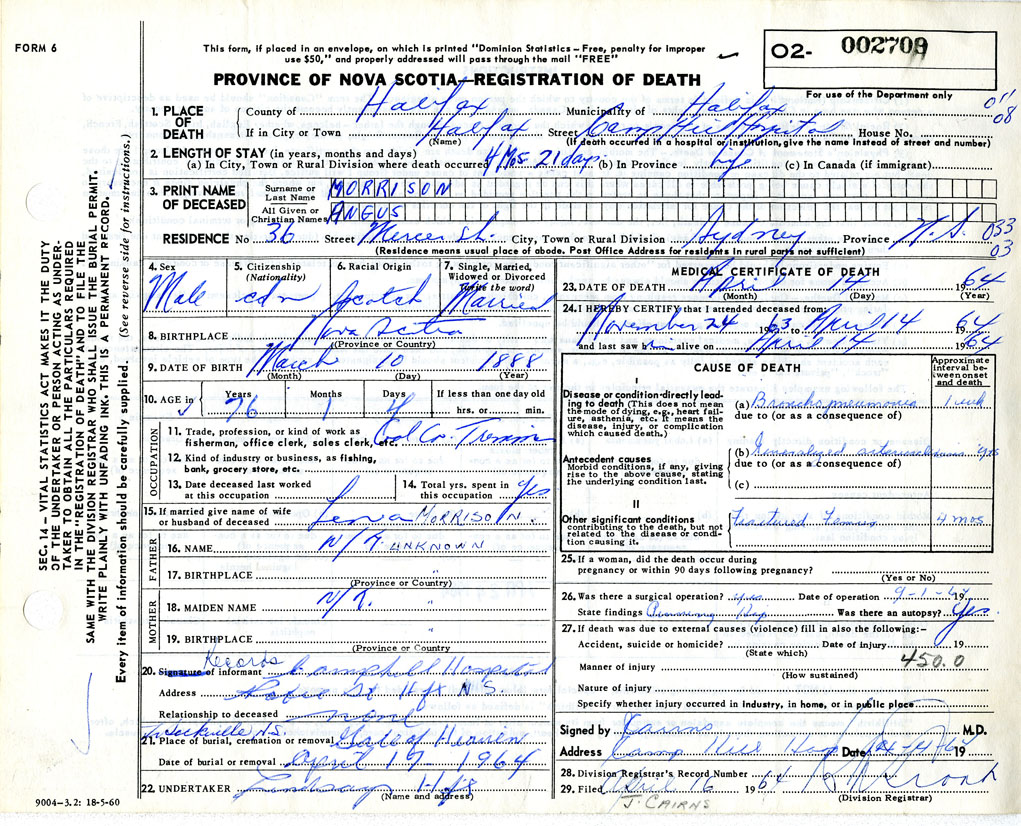 FORM 6
This form, if placed in an envelope, on which is printed "Dominion Statistics – Free, penalty for improper
use $50," and properly addressed will pass through the mail "FREE"
PROVINCE OF NOVA SCOTIA—REGISTRATION OF DEATH
O2- 002709
For use of the Department only
011
08
1. PLACE OF DEATH
County of Halifax Municipality of Halifax
If in City or Town Halifax Street Camp Hill Hospital House No.
(Name) (If death occurred in a hospital or institution, give the name instead of street and number)
2. LENGTH OF STAY (in years, months and days)
(a) In City, Town or Rural Division where death occurred 4 Mos 21 days (b) In Province life (c) In Canada (if immigrant)
3. PRINT NAME OF DECEASED
Surname or Last Name MORRISON
All Given or Christian Names ANGUS
RESIDENCE No 36 Street Mercer St. City, Town or Rural Division Sydney Province N.S.
033
03
(Residence means usual place of abode. Post Office Address for residents in rural parts not sufficient)
4. Sex Male
5. Citizenship (Nationality) cdn
6. Racial Origin Scotch
7. Single, Married, Widowed or Divorced (Write the word) Married
8. BIRTHPLACE Nova Scotia
(Province or Country)
9. DATE OF BIRTH March 10 1888
(Month) (Day) (Year)
10. AGE in Years 76 Months 1 Days 4 If less than one day old hrs. or min.
OCCUPATION
11. Trade, profession, or kind of work as fisherman, office clerk, sales clerk, etc. Coal Co.
12. Kind of industry or business, as fishing, bank, grocery store, etc.
13. Date deceased last worked at this occupation
14. Total yrs. spent in this occupation yes
15. If married give name of wife or husband of deceased Lena MORRISON.
FATHER
16. NAME N/K. UNKNOWN
17. BIRTHPLACE "
(Province or Country)
MOTHER
18. MAIDEN NAME N/K. "
19. BIRTHPLACE "
(Province or Country)
Records
20. Signature of informant Hospital
Address St Hfx N.S.
Relationship to deceased none
Sackville N.S.
21. Place of burial, cremation or removal Gate of Heaven
Date of burial or removal April 17 - 1964
22. UNDERTAKER Lindsay Hfx
(Name and address)
9004-3.2: 18-5-60
MEDICAL CERTIFICATE OF DEATH
23. DATE OF DEATH April 14 1964
(Month) (Day) (Year)
24. I HEREBY CERTIFY that I attended deceased from:
November 24 1963 to April 14 1964
and last saw him alive on April 14 1964
CAUSE OF DEATH
Approximate interval between onset and death
I
Disease or condition directly leading to death (This does not mean the mode of dying, e.g., heart failure, asthenia, etc. It means the disease, injury, or complication which caused death.)
(a) Bronchopneumonia 1 week
due to (or as a consequence of)
Antecedent causes
Morbid conditions, if any, giving rise to the above cause, stating the underlying condition last.
(b) Generalized arteriosclerosis yrs
due to (or as a consequence of)
(c)
II
Other significant conditions contributing to the death, but not related to the disease or condition causing it.
Fractured Femur 4 mos
25. If a woman, did the death occur during pregnancy or within 90 days following pregnancy?
(Yes or No)
26. Was there a surgical operation? yes Date of operation 9-1-64 19
State findings Pinning Hip Was there an autopsy? Yes.
27. If death was due to external causes (violence) fill in also the following:–
Accident, suicide or homicide? Date of injury 19
(State which)
450.0
Manner of injury
(How sustained)
Nature of injury
Specify whether injury occurred in Industry, in home, or in public place
Signed by Cairns M.D.
Address Camp Hill Hosp Date 19
28. Division Registrar's Record Number
29. Filed April 16 1964
(Division Registrar)
J. CAIRNS
SEC. 14 – VITAL STATISTICS ACT MAKES IT THE DUTY
OF THE UNDERTAKER OR PERSON ACTING AS UNDER-
TAKER TO OBTAIN ALL THE PARTICULARS REQUIRED
IN THE "REGISTRATION OF DEATH" AND TO FILE THE
SAME WITH THE DIVISION REGISTRAR WHO SHALL ISSUE THE BURIAL PERMIT.
WRITE PLAINLY WITH UNFADING INK. THIS IS A PERMANENT RECORD.
Every item of information should be carefully supplied. (See reverse side for instructions.)